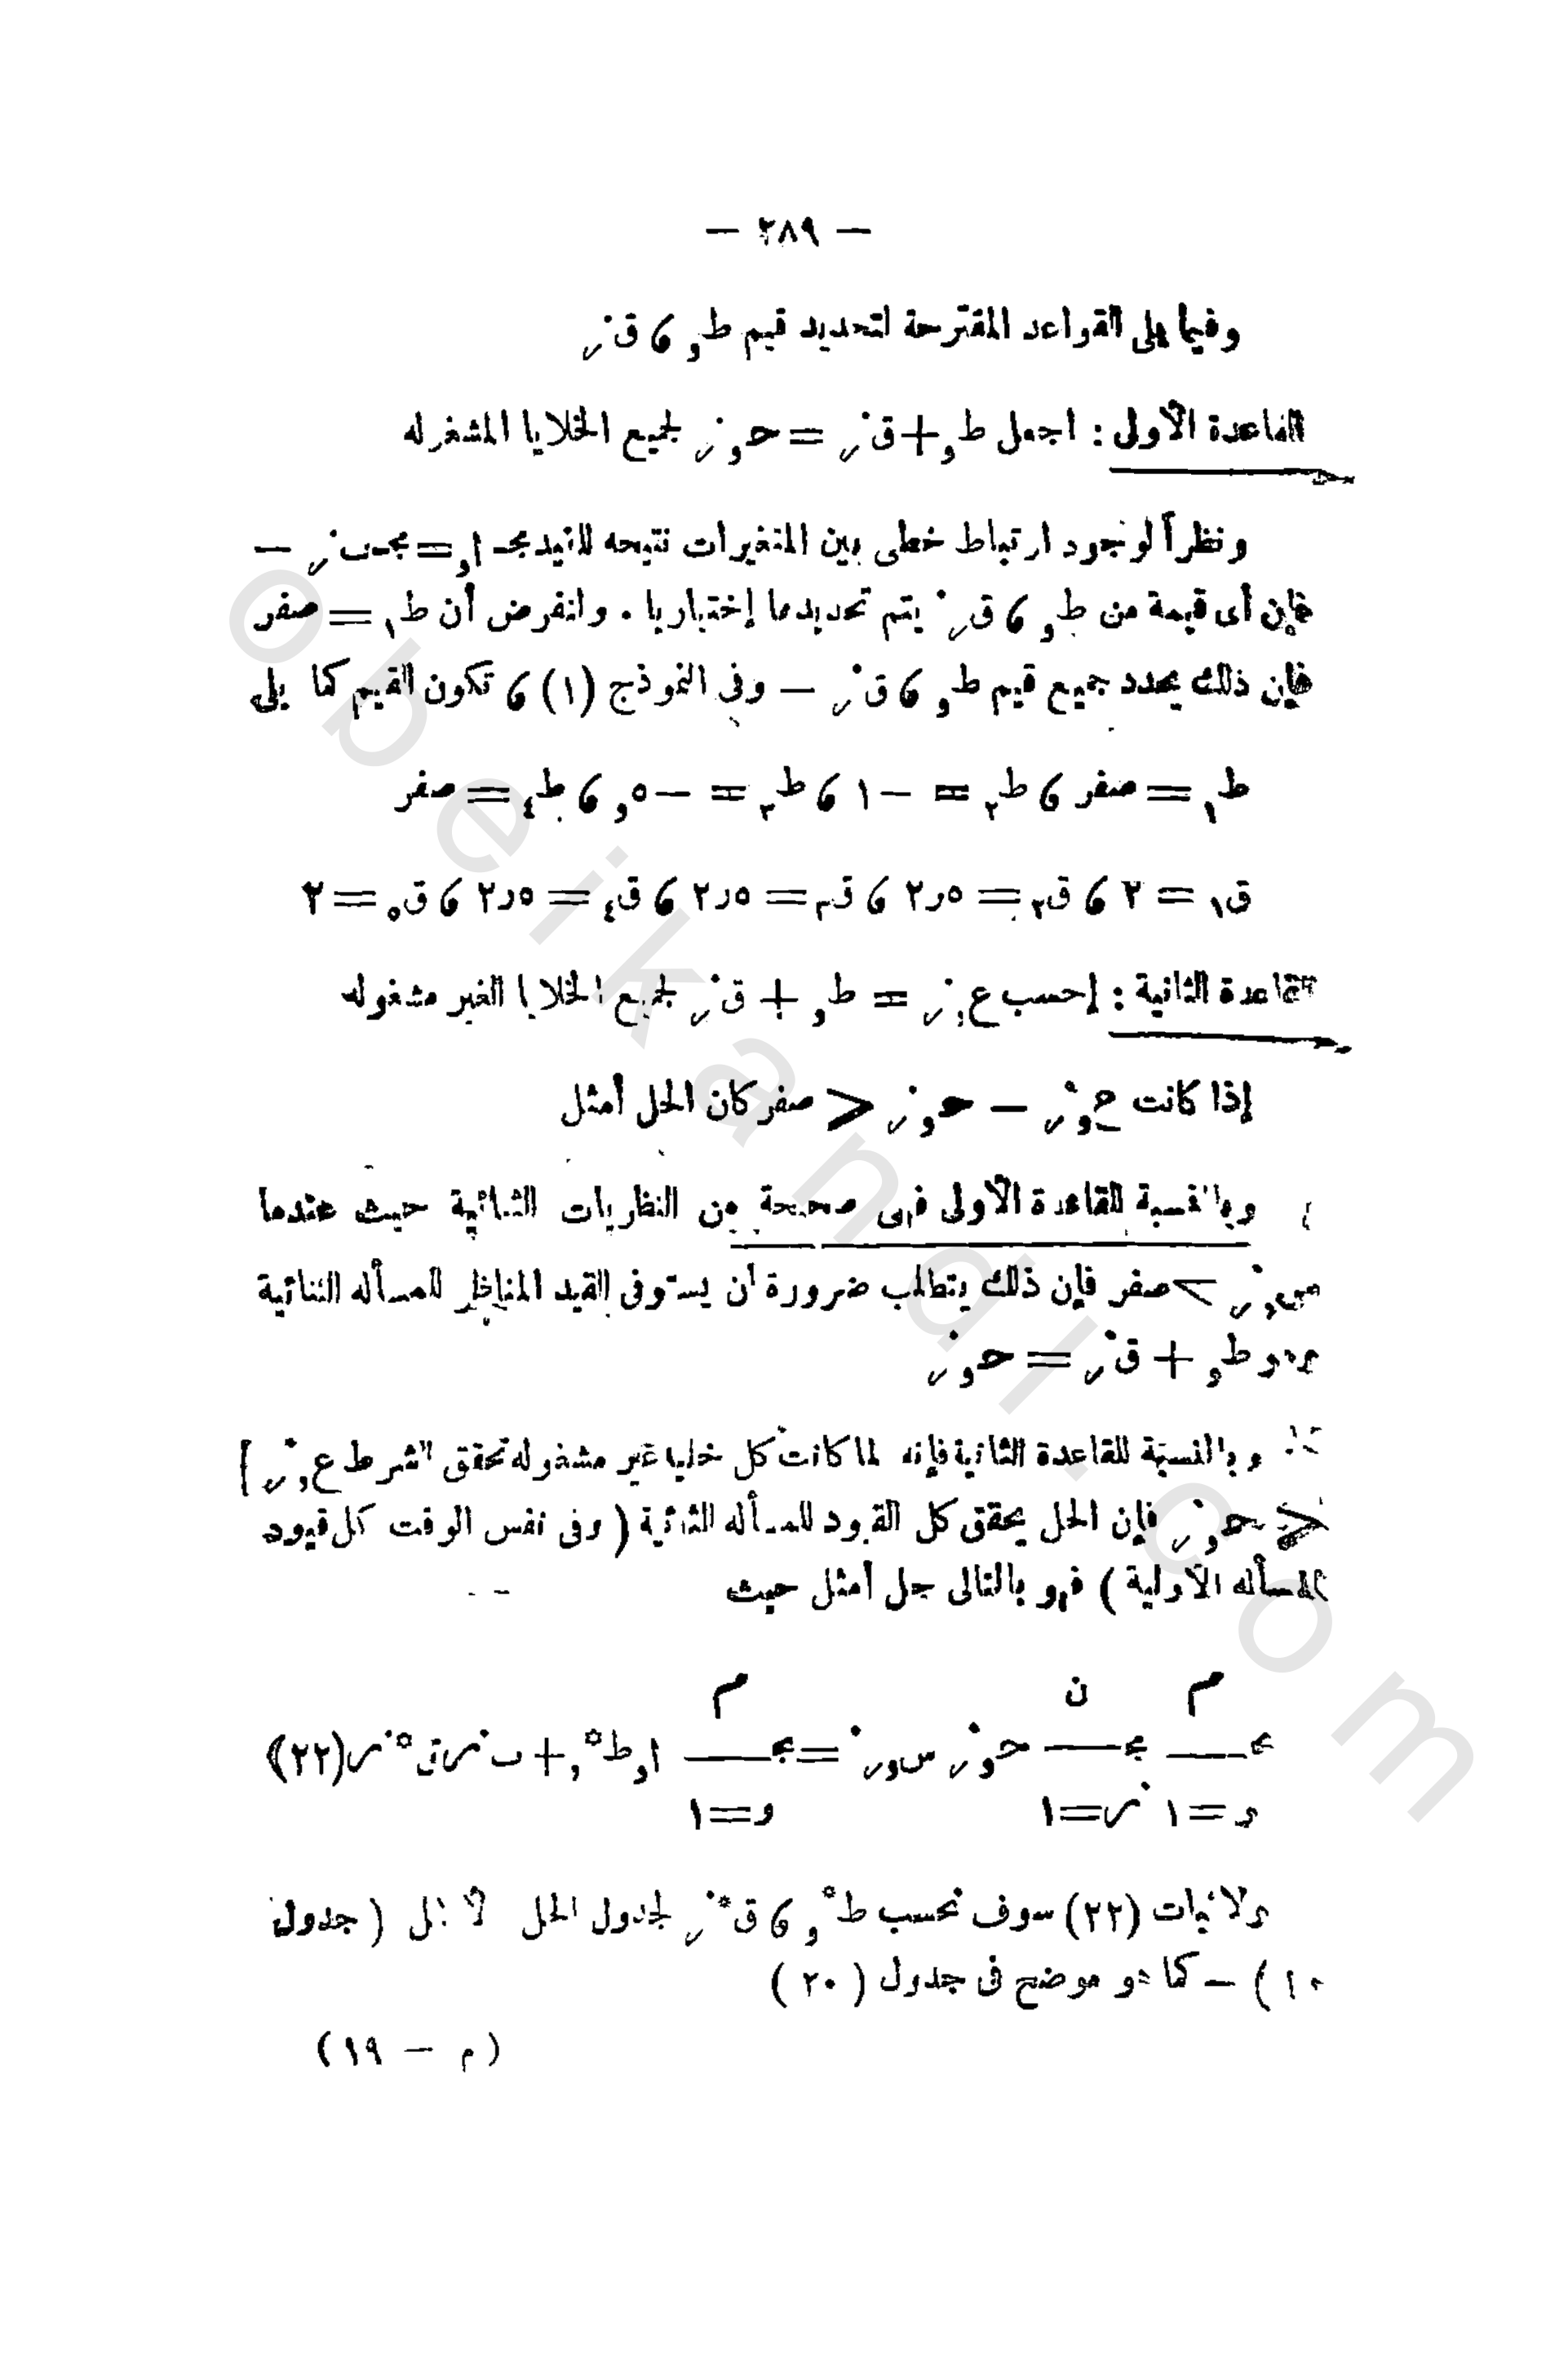 — ٢٨٩ —
وفيما يلى القواعد المقترحة لتحديد قيم طو ، قز
القاعدة الأولى : اجعل طو + قز = حوز لجميع الخلايا المشغوله
ونظراً لوجود ارتباط خطى بين المتغيرات نتيجه للقيد مجـ او = مجـ بز —
فإن أى قيمة من طو ، قز يتم تحديدها إختباريا . ولنفرض أن ط١ = صفر
فإن ذلك يحدد جميع قيم طو ، قز — وفى النموذج (١) ، تكون القيم كما يلى
ط١ = صفر ، ط٢ = — ١ ، ط٣ = — ٥و ، ط٤ = صفر
ق١ = ٢ ، ق٢ = ٢٫٥ ، ق٣ = ٢٫٥ ، ق٤ = ٢٫٥ ، ق٥ = ٢
القاعدة الثانية : إحسب عوز = طو + قز لجميع الخلايا الغير مشغوله
إذا كانت عوز — حوز < صفر كان الحل أمثل
وبالنسبة للقاعدة الأولى فهى صحيحة من النظريات الثنائية حيث عندما
سوز > صفر فإن ذلك يتطلب ضرورة أن يستوفى القيد المناظر للمسأله الثنائية
طو + قز = حوز
وبالنسبة للقاعدة الثانية فإنه لما كانت كل خليا غير مشغوله تحقق الشرط عوز
≤ حوز فإن الحل يحقق كل القيود للمسأله الثنائية ( وفى نفس الوقت كل قيود
المسأله الأولية ) فهو بالتالى حل أمثل حيث
م ن م
مجـ مجـ حوز سوز = مجـ او ط*و + بز ق*ز (٢٢)
و = ١ ز = ١ و = ١
ولاثبات (٢٢) سوف نحسب ط*و ، ق*ز لجدول الحل ( جدول
١٠ ) — كما هو موضح فى جدول ( ٢٠ )
( م — ١٩ )
obeikandl.com